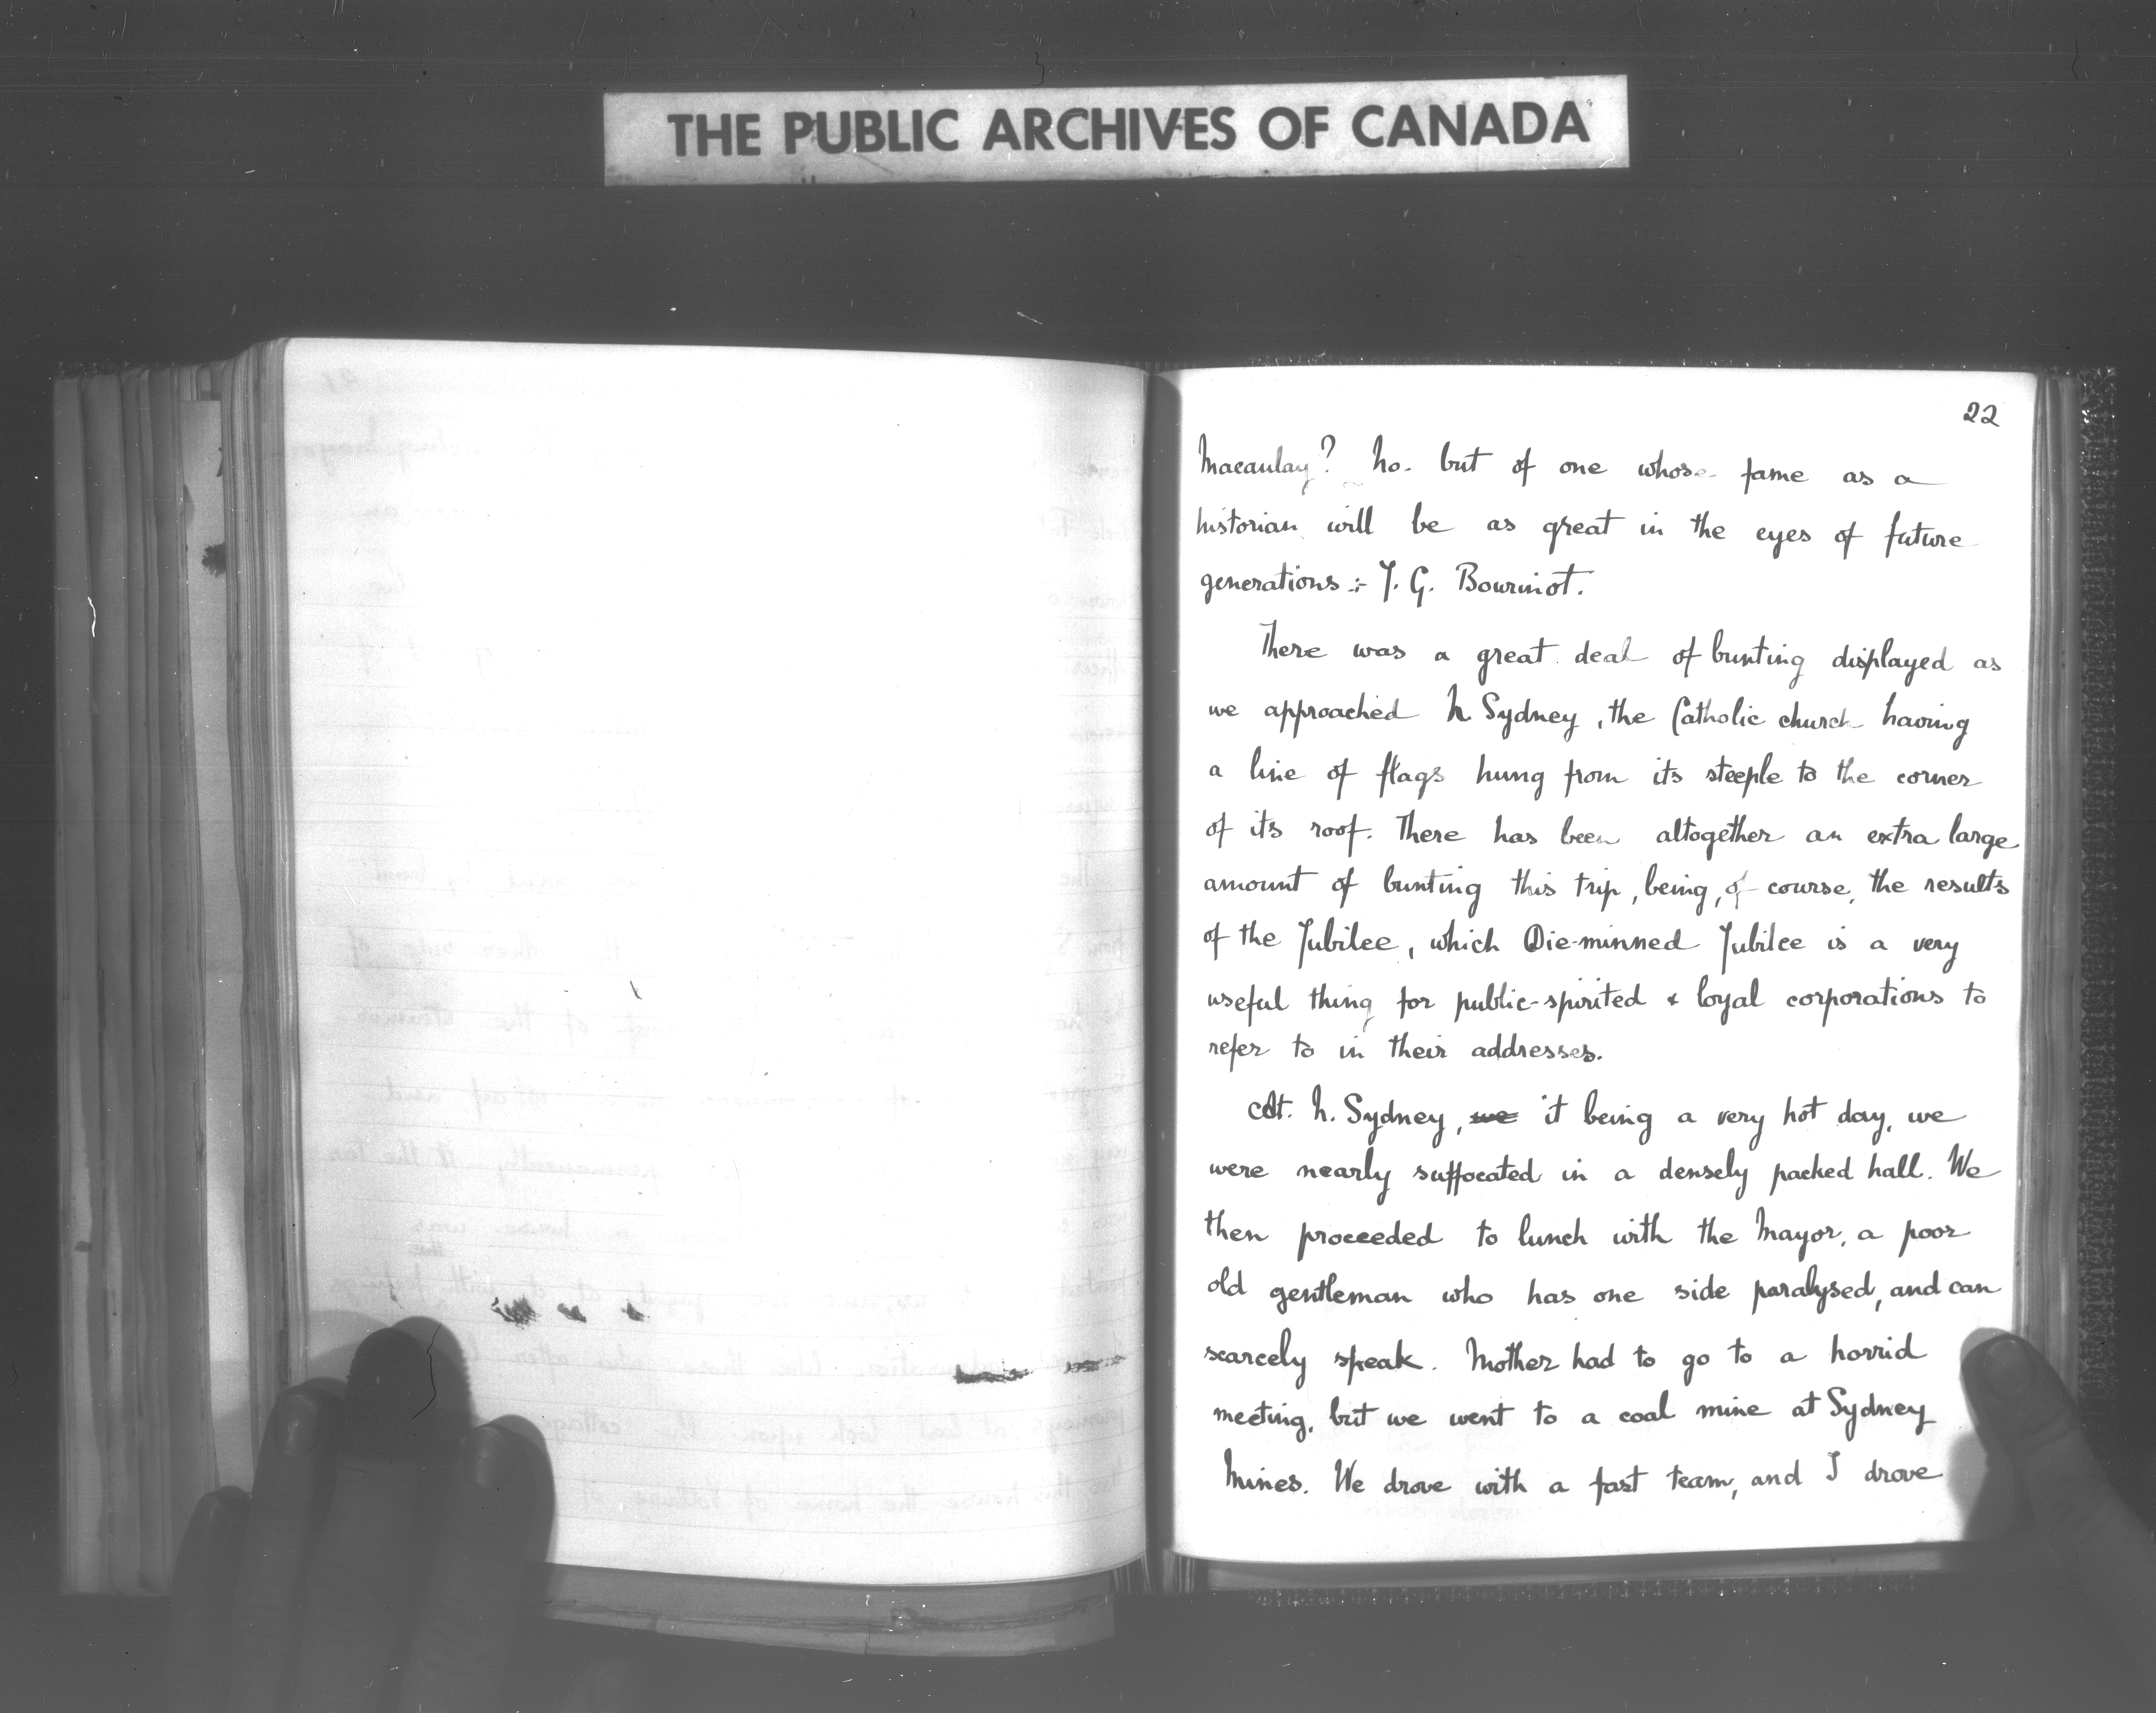 THE PUBLIC ARCHIVES OF CANADA
22
Macaulay? No. but of one whose fame as a
historian will be as great in the eyes of future
generations :- J. G. Bourinot.
There was a great deal of bunting displayed as
we approached N. Sydney, the Catholic church having
a line of flags hung from its steeple to the corner
of its roof. There has been altogether an extra large
amount of bunting this trip, being, of course, the results
of the Jubilee, which Die-minned Jubilee is a very
useful thing for public-spirited & loyal corporations to
refer to in their addresses.
At. N. Sydney, we it being a very hot day, we
were nearly suffocated in a densely packed hall. We
then proceeded to lunch with the Mayor, a poor
old gentleman who has one side paralysed, and can
scarcely speak. Mother had to go to a horrid
meeting, but we went to a coal mine at Sydney
Mines. We drove with a fast team, and I drove